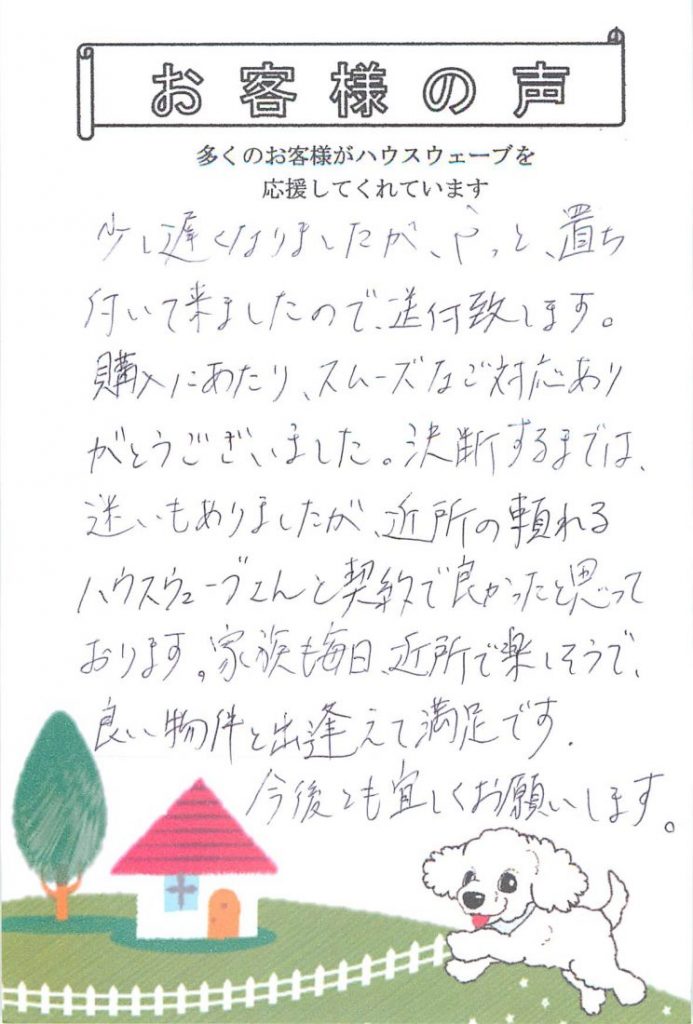 お客様の声
多くのお客様がハウスウェーブを
応援してくれています
少し遅くなりましたが、やっと、置ち
付いて来ましたので、送付致します。
購入にあたり、スムーズなご対応あり
がとうございました。決断するまでは、
迷いもありましたが、近所の頼れる
ハウスウェーブさんと契約で良かったと思って
おります。家族も毎日、近所で楽しそうで、
良い物件と出逢えて満足です.
今後とも宜しくお願いします。